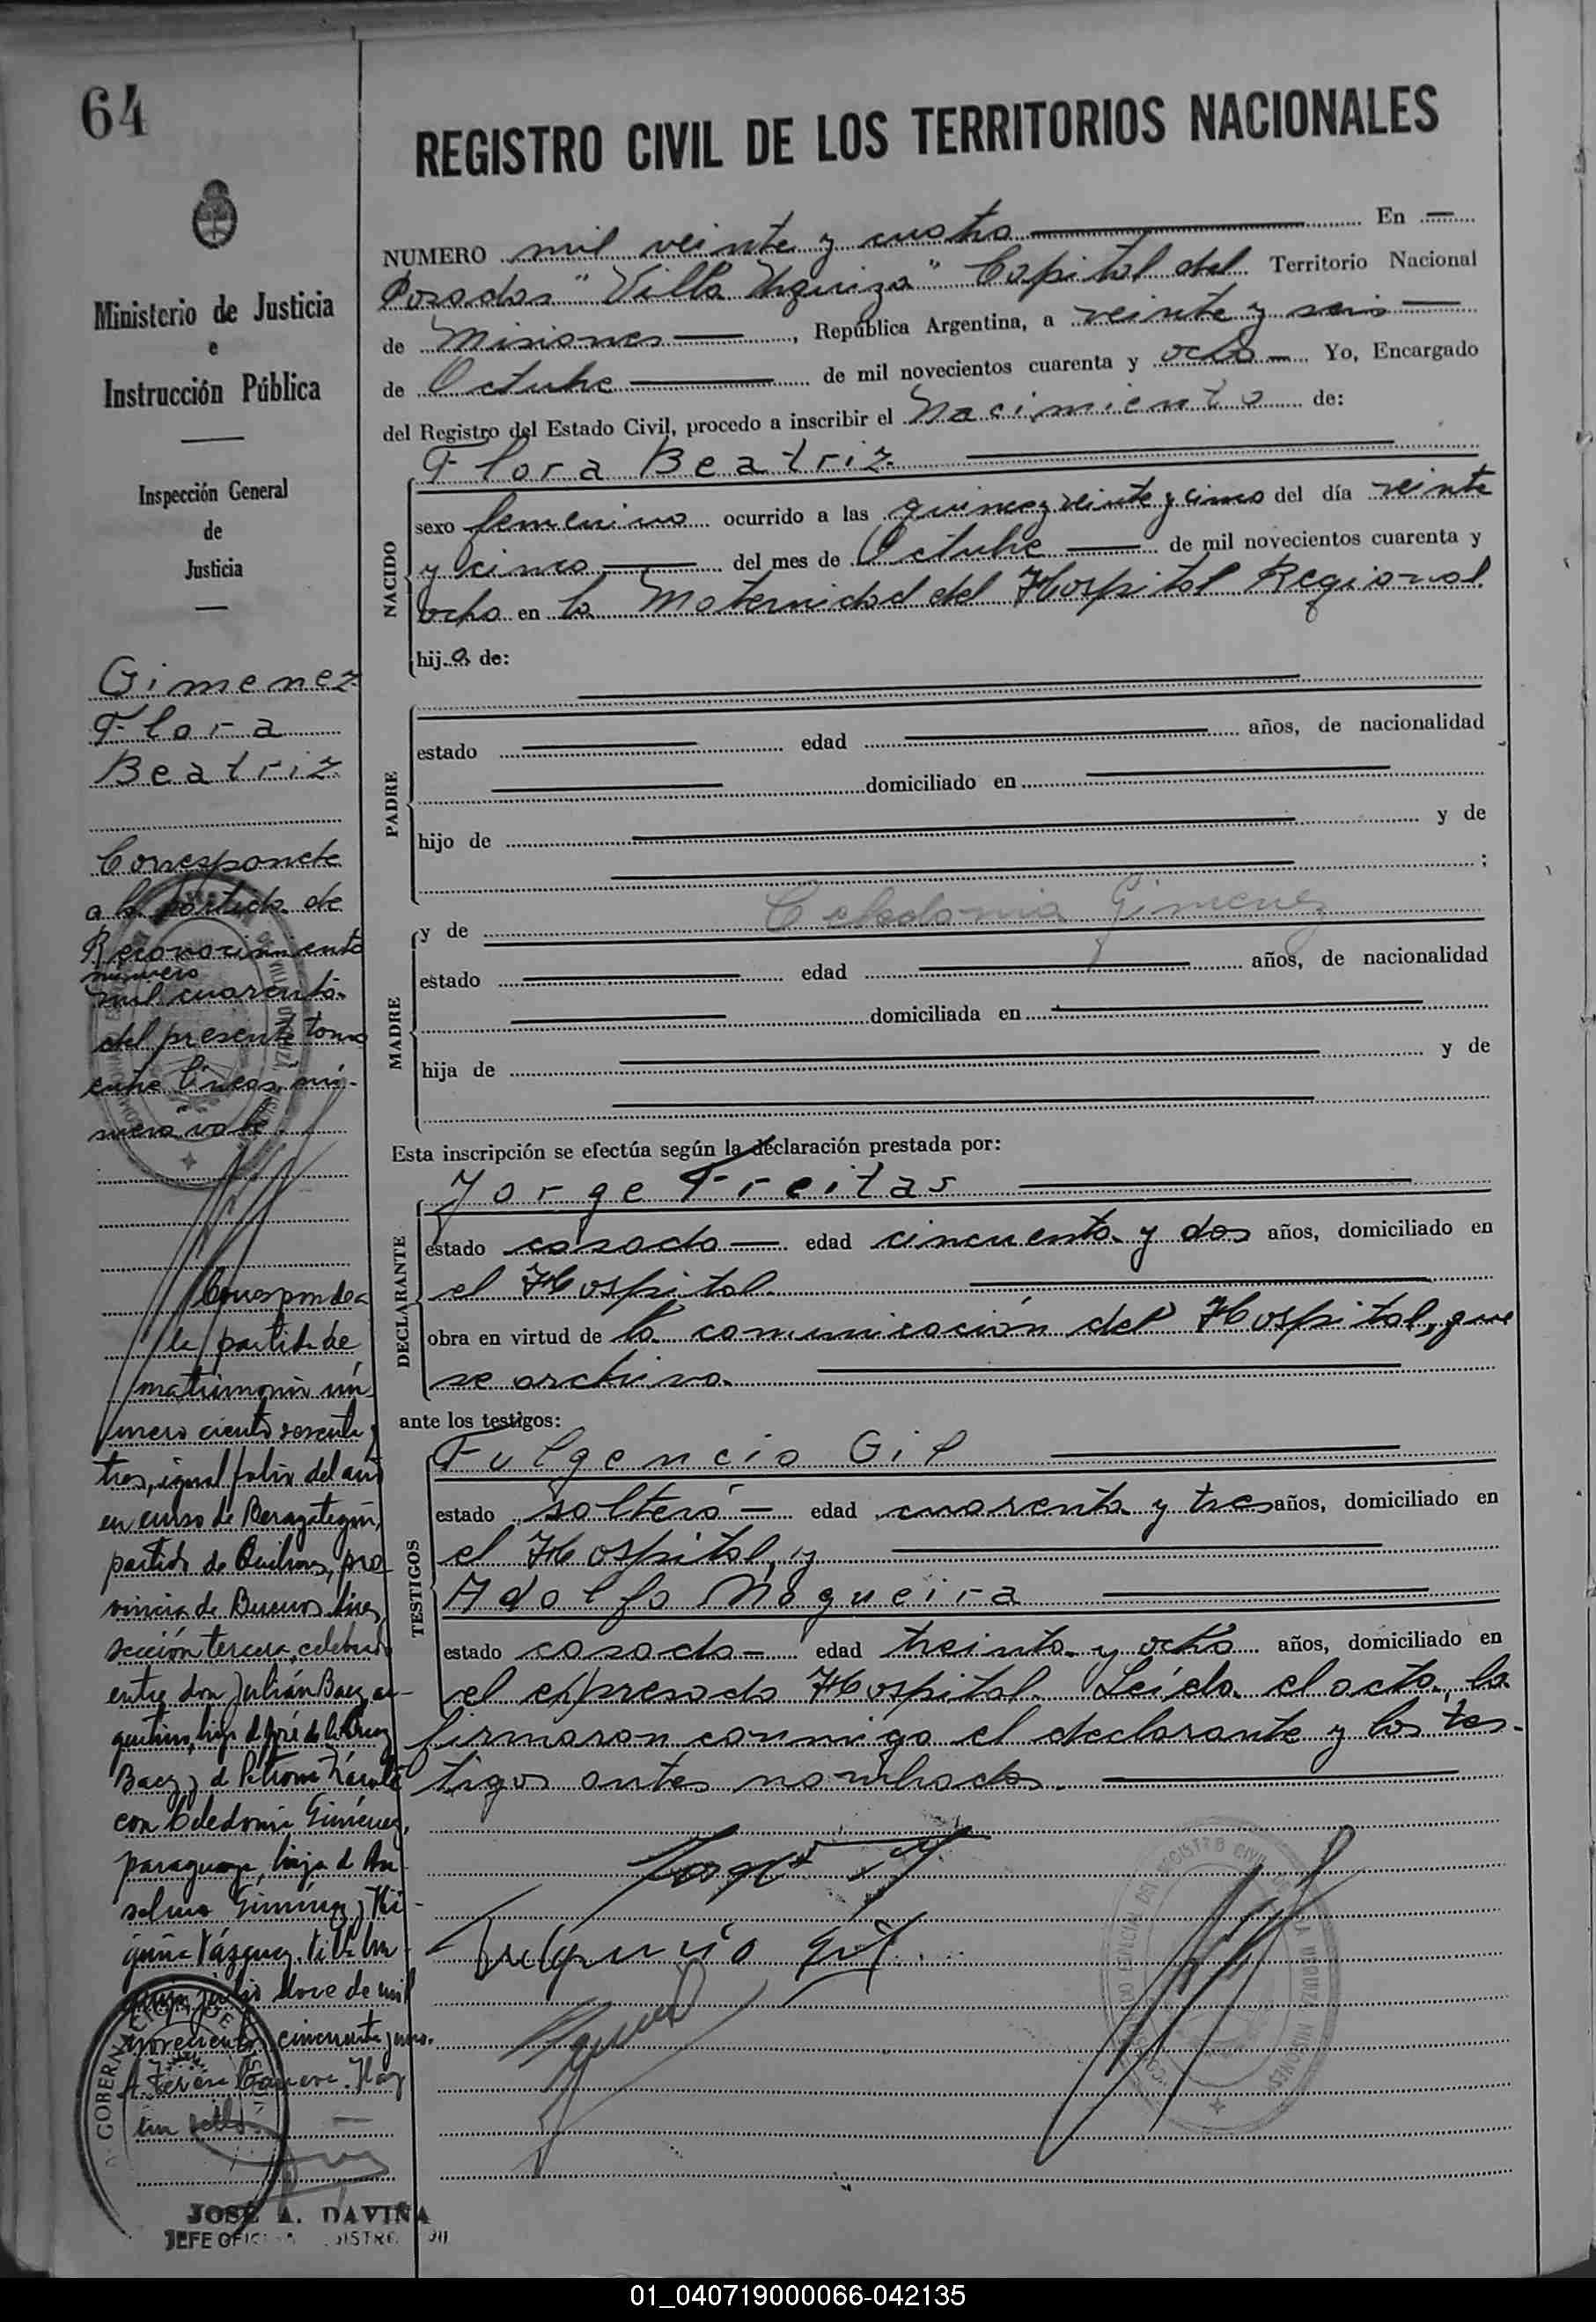 64
REGISTRO CIVIL DE LOS TERRITORIOS NACIONALES
Ministerio de Justicia
e
Instrucción Pública
Inspección General
de
Justicia
Gimenez
Flora
Beatriz
Corresponde
a la partida de
Reconocimiento
número
mil cuarenta
del presente tomo
entre lineas nú-
mero vale.
Corresponde a
la partida de
matrimonio nú
mero ciento sesenta y
tres, igual folio del año
en curso de Berazategui,
partido de Quilmes, pro
vincia de Buenos Aires,
sección tercera, celebrado
entre don Julián Baez, ar-
gentino, hijo de José de la Cruz
Baez y de Petrona Zárate
con Celedonia Giménez,
paraguaya, hija de An
selmo Giménez y
Vázquez.
julio doce de mil
novecientos cincuenta y uno.
Hay
un sello.
JOSÉ A. DAVIÑA
JEFE
NUMERO mil veinte y cuatro En
Posadas "Villa Urquiza" Capital del Territorio Nacional
de Misiones, República Argentina, a veinte y seis
de Octubre de mil novecientos cuarenta y ocho Yo, Encargado
del Registro del Estado Civil, procedo a inscribir el Nacimiento de:
Flora Beatriz
NACIDO
sexo femenino ocurrido a las quince y veinte y cinco del día veinte
y cinco del mes de Octubre de mil novecientos cuarenta y
ocho en la Maternidad del Hospital Regional
hija de:
PADRE
estado edad años, de nacionalidad
domiciliado en
hijo de y de
;
MADRE
y de Celedonia Gimenez
estado edad años, de nacionalidad
domiciliada en
hija de y de
Esta inscripción se efectúa según la declaración prestada por:
DECLARANTE
Jorge Freitas
estado casado edad cincuenta y dos años, domiciliado en
el Hospital.
obra en virtud de la comunicación del Hospital, que
se archiva.
ante los testigos:
TESTIGOS
Fulgencio Gil
estado soltero edad cuarenta y tres años, domiciliado en
el Hospital, y
Adolfo Nogueira
estado casado edad treinta y ocho años, domiciliado en
el expresado Hospital. Leída el acta, la
firmaron conmigo el declarante y los tes-
tigos antes nombrados.
Fulgencio Gil
01_040719000066-042135